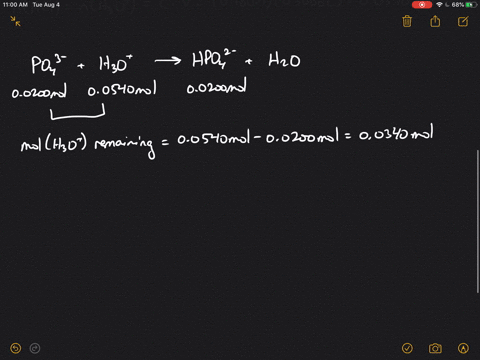 11:00 AM Tue Aug 4
68%
PO₄³⁻ + H₃O⁺ → HPO₄²⁻ + H₂O
0.0200mol 0.0540mol 0.0200mol
mol(H₃O⁺) remaining = 0.0540mol - 0.0200mol = 0.0340mol